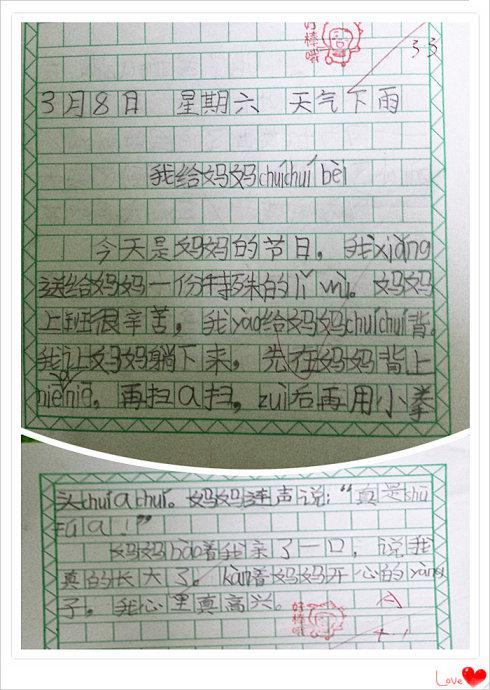 好棒哦
33
3月8日 星期六 天气下雨
我给妈妈chuíchuí bèi
今天是妈妈的节日,我xiǎng
送给妈妈一份特殊的lǐ wù。妈妈
上班很辛苦,我yào给妈妈chuíchuí背。
我让妈妈躺下来,先在妈妈背上
niēniē,再扫a扫,zuì后再用小拳
头chuí a chuí。妈妈连声说:“真是shū
fú a!”
妈妈bào着我亲了一口,说我
真的长大了。kàn着妈妈开心的yàng
子,我心里真高兴。
好棒哦
A
Love